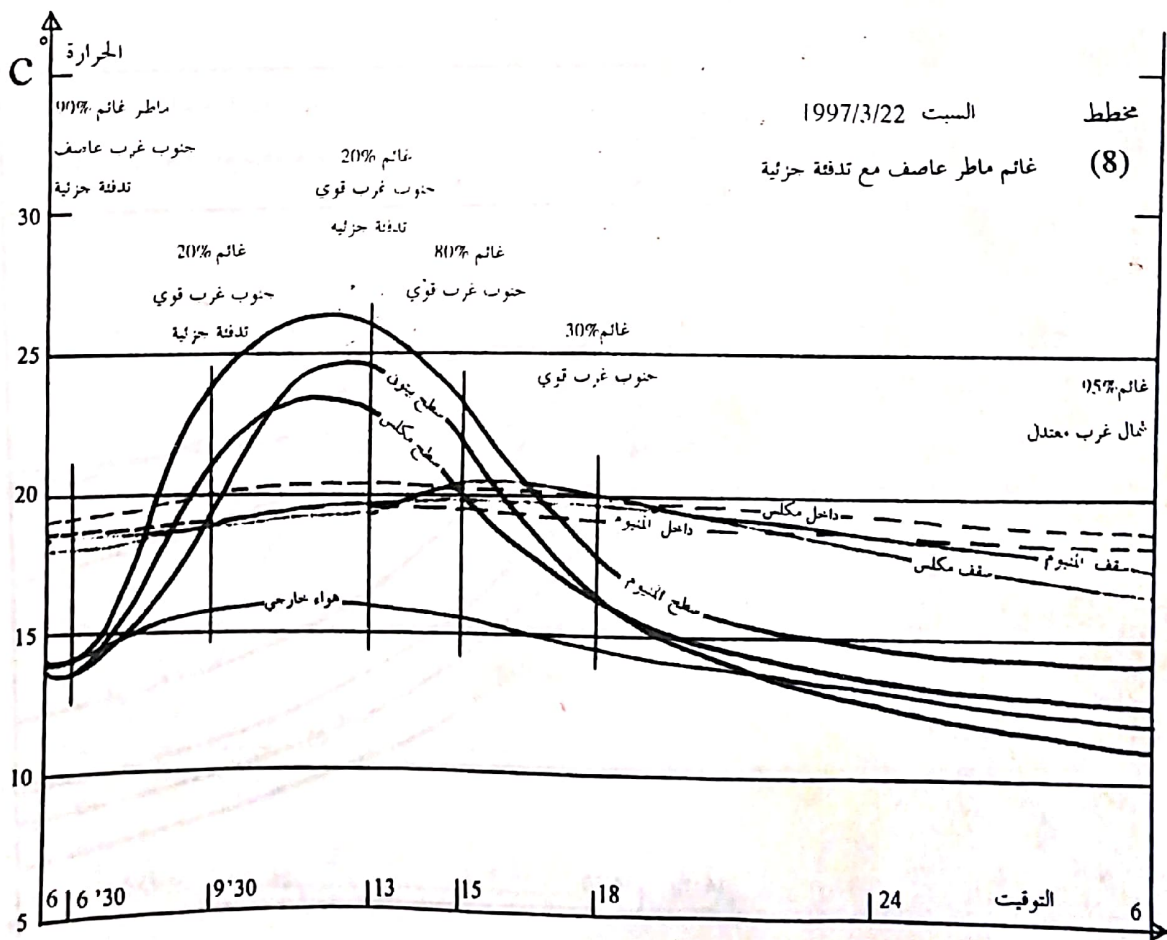 C° الحرارة
مخطط
(8)
السبت 1997/3/22
غائم ماطر عاصف مع تدفئة جزئية
ماطر غائم 90%
جنوب غرب عاصف
تدفئة جزئية
غائم 20%
جنوب غرب قوي
تدفئة جزئية
غائم 20%
جنوب غرب قوي
تدفئة جزئيه
غائم 80%
جنوب غرب قوي
غائم 30%
جنوب غرب قوي
غائم 95%
شمال غرب معتدل
30
25
20
15
10
5
سطح بيتون
سطح مكلس
داخل مكلس
داخل المنيوم
سقف المنيوم
سقف مكلس
سطح المنيوم
هواء خارجي
6 6'30 9'30 13 15 18 24 التوقيت 6